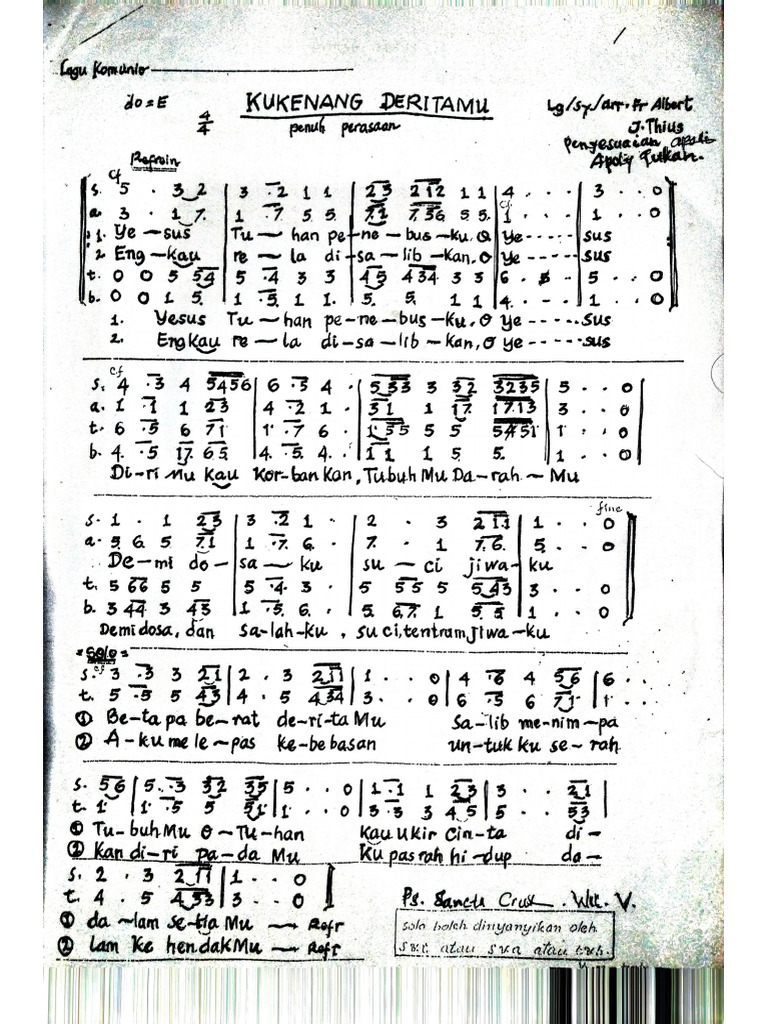 1
Lagu Komunio
do = E 4/4 KUKENANG DERITAMU Lg/Sy/arr. Fr Albert
penuh perasaan J. Thius
Penyesuaian
Apoly
Refrein
cf
s. 5 . 3 2 | 3 .2 1 1 | 23 212 1 1 | 4 . . . | 3 . . 0
a. 3 . 1 7 | 1 .7 5 5 | 71 7.56 5 5 | 1 . . . | 1 . . 0
1. Ye - sus Tu - han pe - ne - bus - ku, O Ye ----- sus
2. Eng - kau re - la di - sa - lib - kan, O Ye ----- sus
t. 0 0 5 54 | 5 .4 3 3 | 45 434 3 3 | 6 . 5 . | 5 . . 0
b. 0 0 1 5 | 1 .5 1 1 | 5 5 1 1 | 4 . . . | 1 . . 0
1. Yesus Tu - han pe - ne - bus - ku, O Ye ----- sus
2. Engkau re - la di - sa - lib - kan, O Ye ----- sus
cf
s. 4 .3 4 5456 | 6 .5 4 . | 533 3 32 3235 | 5 . . 0
a. 1 .1 1 23 | 4 .2 1 . | 31 1 17 1713 | 3 . . 0
t. 6 .5 6 71 | 1 .7 6 . | 155 5 5 5451 | 1 . . 0
b. 4 .5 17 65 | 4 .5 4 . | 11 1 5 5 | 1 . . 0
Di - ri Mu Kau Kor - ban Kan, Tubuh Mu Da - rah - Mu
fine
s. 1 . 1 23 | 3 .2 1 . | 2 . 3 211 | 1 . . 0
a. 5 6 5 71 | 1 .7 6 . | 7 . 1 76 | 5 . . 0
De - mi do - sa - ku su - ci jiwa - ku
t. 5 66 5 5 | 5 .4 3 . | 5 55 5 543 | 3 . . 0
b. 3 44 3 43 | 1 .5 6 . | 5 67 1 55 | 1 . . 0
Demi dosa, dan sa-lah-ku, suci, tentram jiwa-ku
= Solo =
cf
s. 3 .3 3 21 | 2 . 3 211 | 1 . . 0 | 4 .6 4 56 | 6 . .
t. 5 .5 5 43 | 4 . 5 434 | 3 . . 0 | 6 .5 6 71 | 1 . .
① Be - ta pa be - rat de - ri - ta Mu Sa - lib me - nim - pa
② A - ku me le - pas ke - be basan un - tuk ku se - rah
s. 56 | 5 .3 32 35 | 5 . . 0 | 1 .1 1 23 | 3 . . 21
t. 1 | 1 .5 5 51 | 1 . . 0 | 3 .3 3 45 | 5 . . 53
① Tu - buh Mu O - Tu - han Kau ukir Cin - ta di -
② Kan di - ri pa - da Mu Ku pasrah hi - dup da -
s. 2 . 3 211 | 1 . . 0
t. 4 . 5 453 | 3 . . 0 Ps. Sancta Crux . Wil. V.
① da - lam se - tia Mu → Refr Solo boleh dinyanyikan oleh
② lam ke hendak Mu → Refr atau sua atau